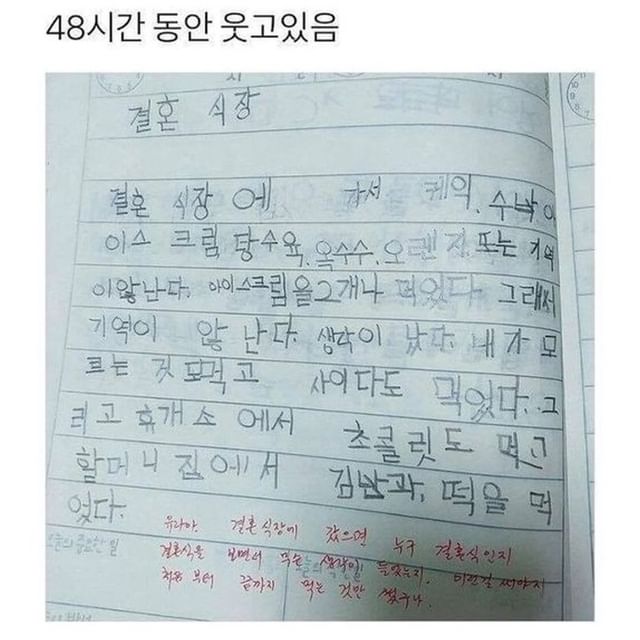 48시간 동안 웃고있음
결혼 식장
결혼 식장 에 가서 케익, 수박 아
이스 크림 탕수육, 옥수수, 오렌지, 또는 기억
이않난다. 아이스크림을 2개나 먹었다. 그래서
기억이 않 난다. 생각이 났다. 내가 모
르는 것 도먹고 사이다도 먹었다. 그
리고 휴개소 에서 초콜릿도 먹고
할머니 집에서 김밥과, 떡을 먹
었다.
유라야. 결혼식장에 갔으면 누구 결혼식인지
결혼식을 보면서 무슨 생각이 들었는지. 이런걸 써야지
처음 부터 끝까지 먹는 것만 썼구나.
오늘의 중요한 일